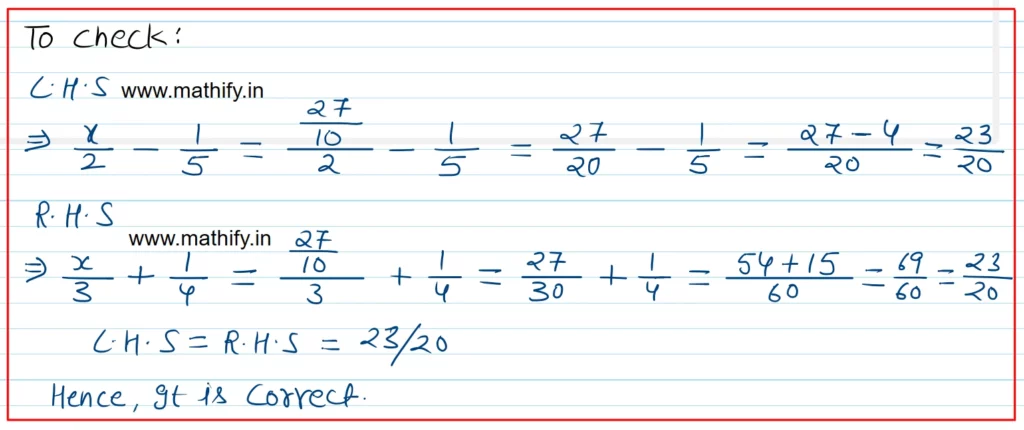 To check:
L.H.S www.mathify.in
⇒ x/2 - 1/5 = (27/10)/2 - 1/5 = 27/20 - 1/5 = (27-4)/20 = 23/20
R.H.S
www.mathify.in
⇒ x/3 + 1/4 = (27/10)/3 + 1/4 = 27/30 + 1/4 = (54+15)/60 = 69/60 = 23/20
L.H.S = R.H.S = 23/20
Hence, It is Correct.